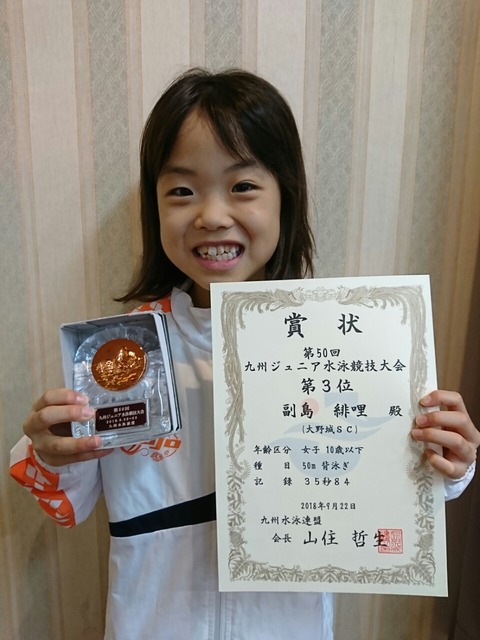 賞状
第50回
九州ジュニア水泳競技大会
第3位
副島 緋哩 殿
(大野城SC)
年齢区分 女子 10歳以下
種目 50m 背泳ぎ
記録 35秒84
2018年9月22日
九州水泳連盟
会長 山住 哲生
第50回
九州ジュニア水泳競技大会
九州水泳連盟